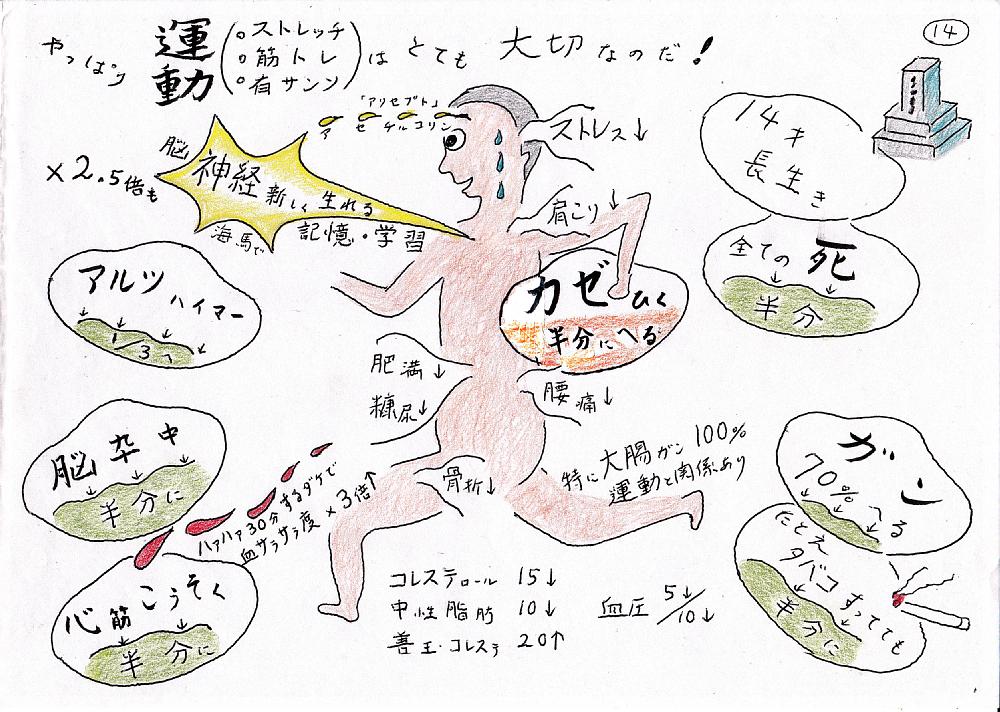 14
やっぱり 運動 (。ストレッチ 。筋トレ 。有サンソ) は とても 大切なのだ!
「アリセプト」
アセチルコリン
ストレス↓
脳 神経 新しく 生れる
×2.5倍も
海馬で
記憶・学習
肩こり↓
14才
長生き
全ての 死
半分
アルツハイマー
1/3へ
カゼ ひく
半分にへる
肥満↓
糖尿↓
腰痛↓
脳卒中
半分に
骨折↓
特に 大腸ガン 100%
運動と関係あり
ガン
70%へる
たとえ
タバコすってても
半分に
ハァハァ30分するダケで
血サラサラ度×3倍↑
心筋こうそく
半分に
コレステロール 15↓
中性脂肪 10↓
善玉・コレステ 20↑
血圧 5↓/10↓